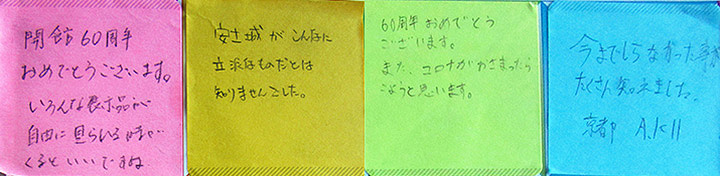 開館60周年
おめでとうございます。
いろんな展示品が
自由に見られる時が
くるといいですね
安土城がこんなに
立派なものだとは
知りませんでした。
60周年おめでとう
ございます。
また、コロナがおさまったら
こようと思います。
今までしらなかった事が
たくさん知れました。
京都